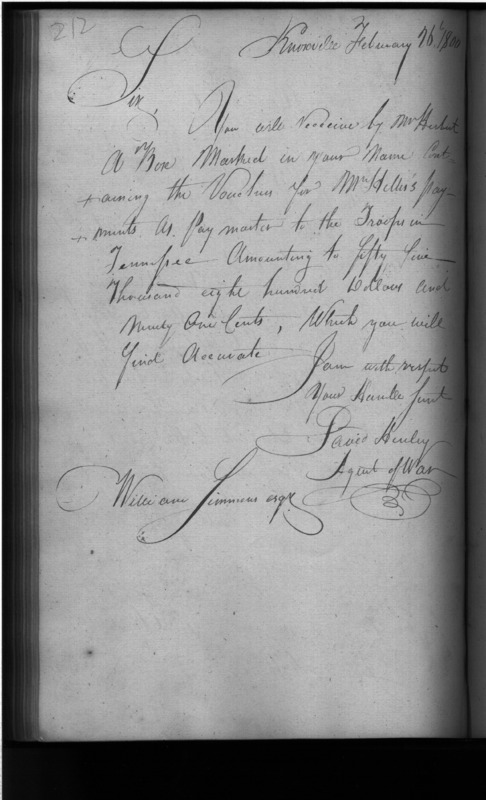 212
Knoxville February 26th 1800
Sir,
You will Receive by Mr Herbert
A Box Marked in your Name Cont-
aining the Vouchers for Mr Hillis's pay-
ments As Pay master to the Troops in
Tennessee Amounting to fifty five
Thousand eight hundred Dollars and
Ninety One Cents, Which you will
find Accurate
I am with respect
Your Humble Servt
David Henley
Agent of War
William Simmons esqr